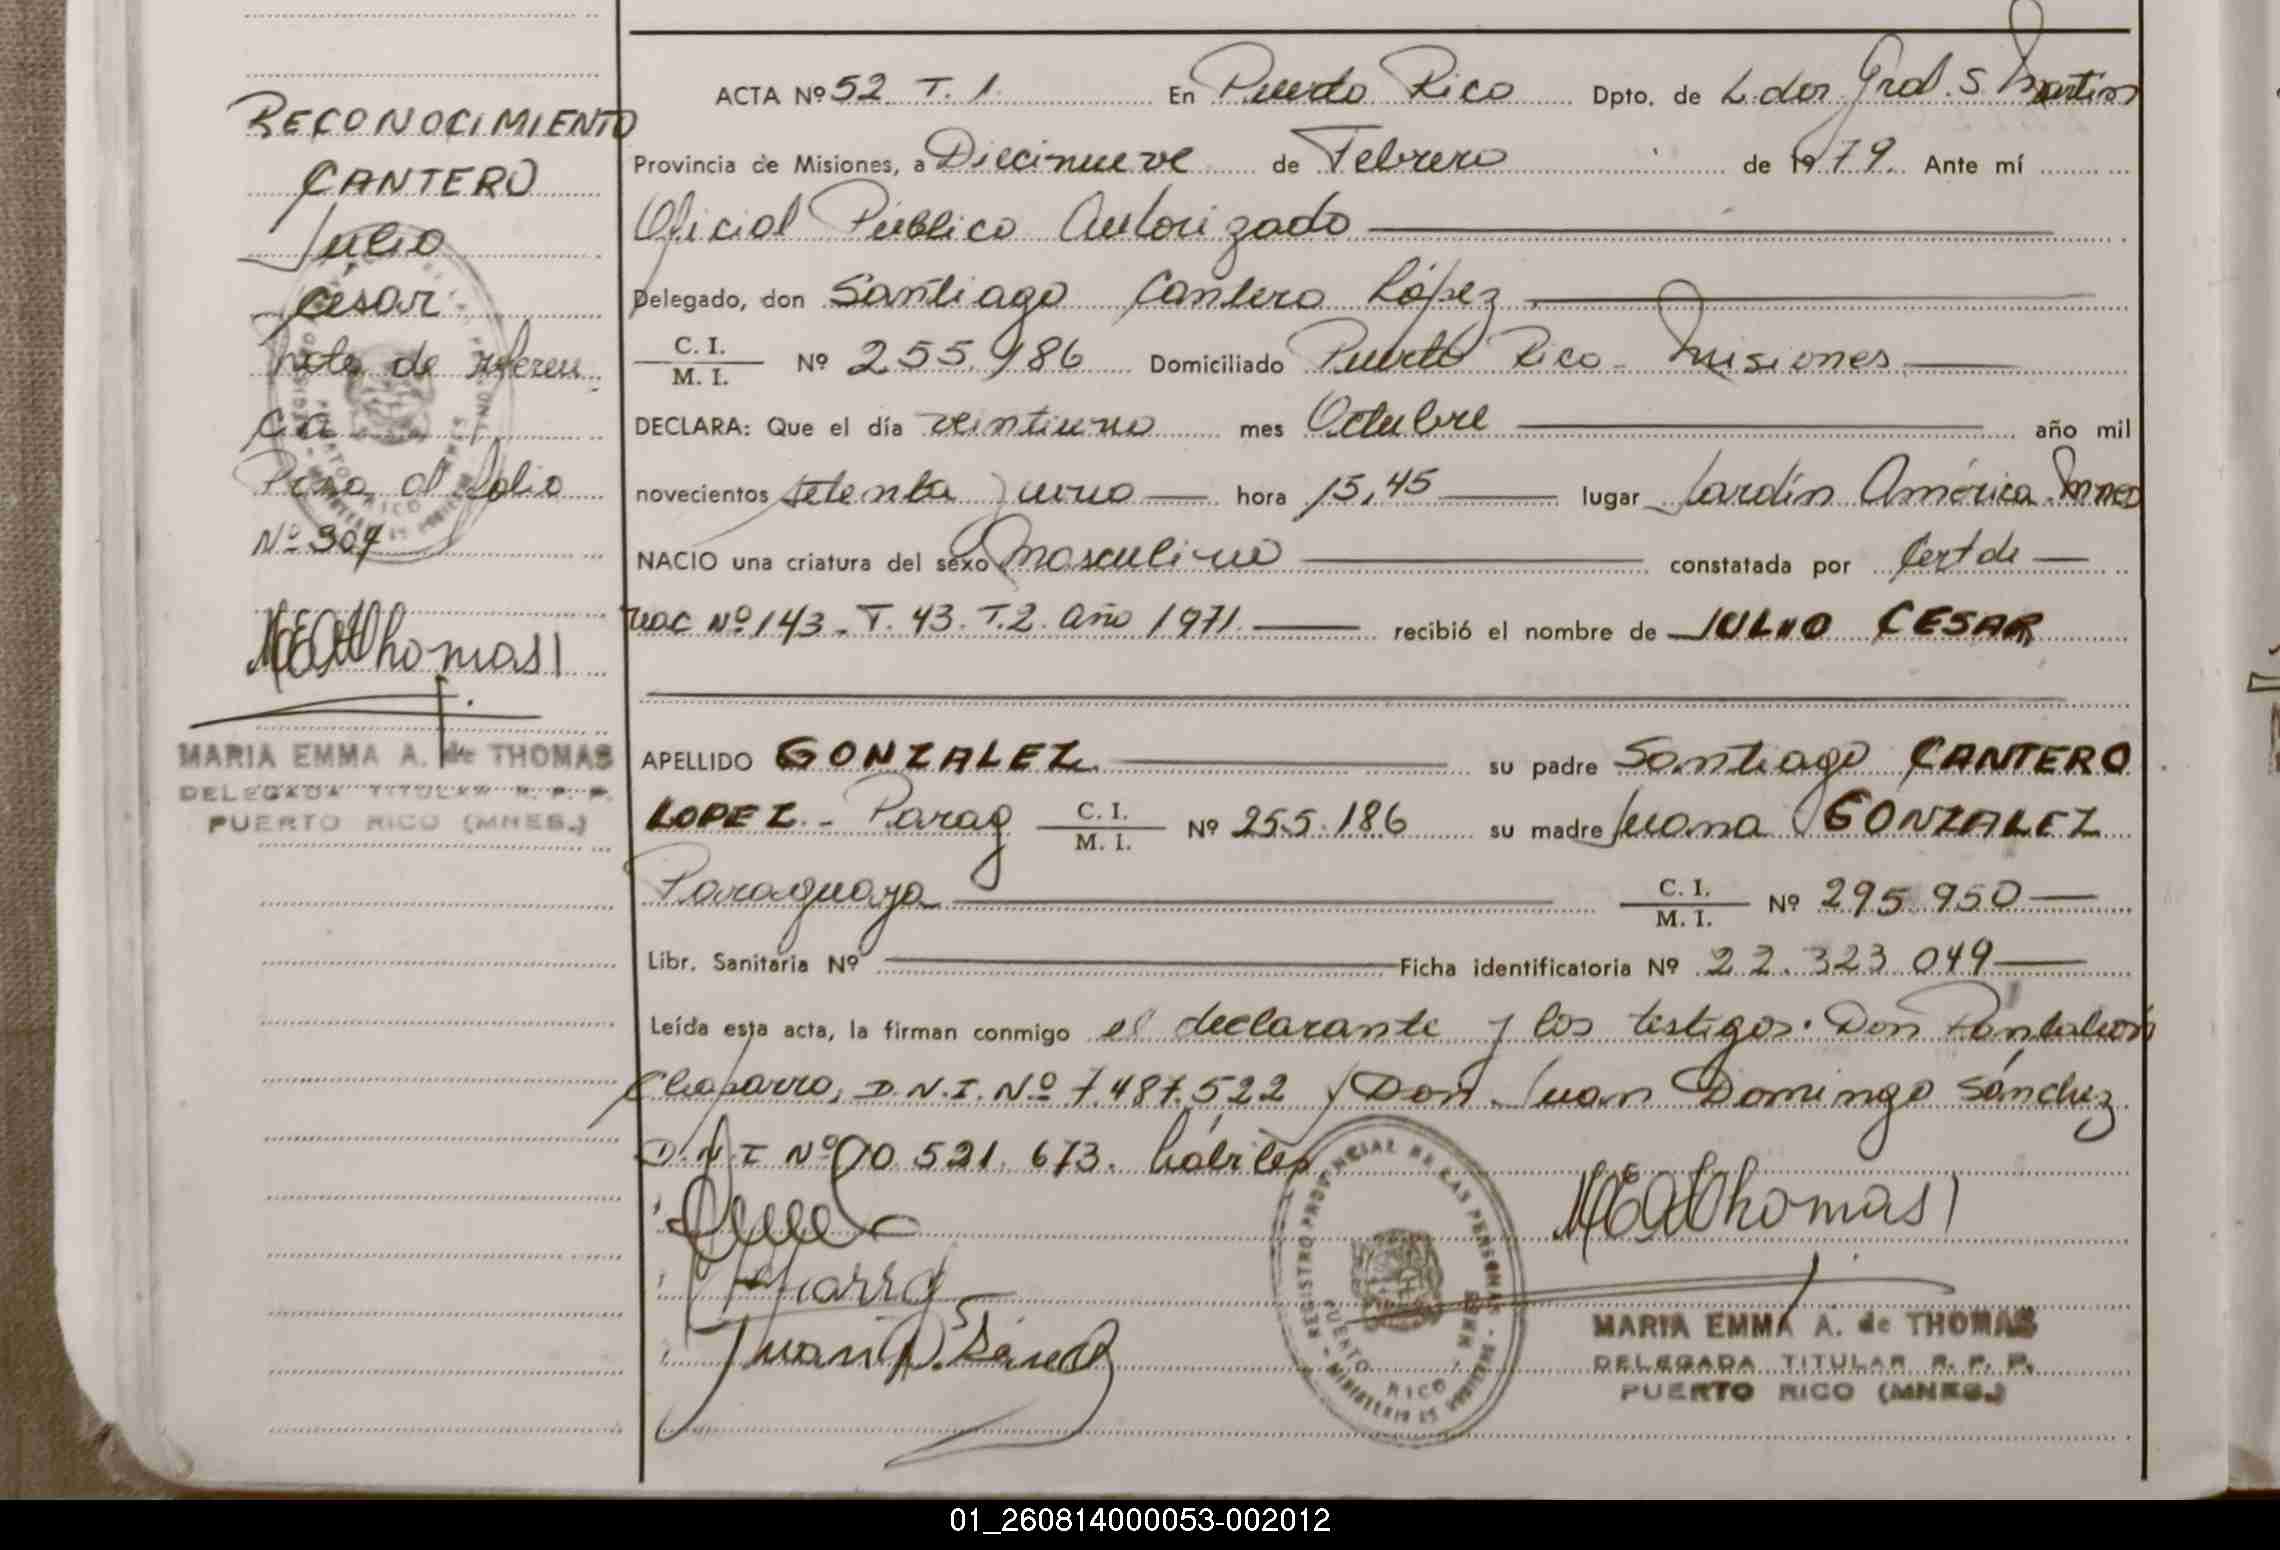 RECONOCIMIENTO
CANTERO
Julio
César
nota de referen-
cia
Pasa al folio
Nº 307
MARIA EMMA A. de THOMAS
DELEGADA TITULAR R. P. P.
PUERTO RICO (MNES.)
ACTA Nº 52 T. 1. En Puerto Rico Dpto. de L.dor Gral. S Martin
Provincia de Misiones, a Diecinueve de Febrero de 1979. Ante mí
Oficial Público Autorizado
Delegado, don Santiago Cantero López
C. I.
M. I. Nº 255.186 Domiciliado Puerto Rico - Misiones
DECLARA: Que el día veintiuno mes Octubre año mil
novecientos setenta y uno hora 15,45 lugar Jardín América. Mnes
NACIO una criatura del sexo Masculino constatada por Cert de
Nac Nº 143. T. 43. T.2. Año 1971. recibió el nombre de JULIO CESAR
APELLIDO GONZALEZ su padre Santiago CANTERO
LOPEZ - Parag C. I.
M. I. Nº 255.186 su madre Juana GONZALEZ
Paraguaya C. I.
M. I. Nº 295.950
Libr. Sanitaria Nº Ficha identificatoria Nº 22.323.049
Leída esta acta, la firman conmigo el declarante y los testigos: Don Pantaleón
Chaparro, D.N.I. Nº 7.487.522 y Don Juan Domingo Sánchez
D.N.I Nº 10.521.673. hábiles
Juan D. Sánchez
REGISTRO PROVINCIAL DE LAS PERSONAS
PUERTO RICO
MARIA EMMA A. de THOMAS
DELEGADA TITULAR R. P. P.
PUERTO RICO (MNES.)
01_260814000053-002012